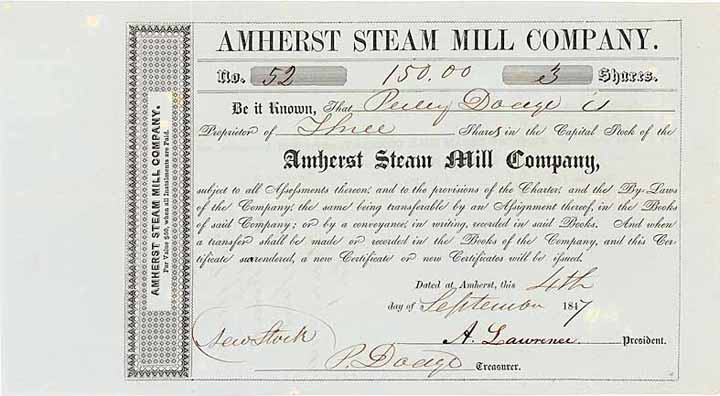 AMHERST STEAM MILL COMPANY.
Par Value $50, when all Instalments are Paid.
AMHERST STEAM MILL COMPANY.
No. 52 150.00 3 Shares.
Be it Known, That Perley Dodge is
Proprietor of Three Shares in the Capital Stock of the
Amherst Steam Mill Company,
subject to all Assessments thereon; and to the provisions of the Charter; and the By-Laws
of the Company; the same being transferable by an Assignment thereof, in the Books
of said Company; or by a conveyance, in writing, recorded in said Books. And when
a transfer shall be made or recorded in the Books of the Company, and this Cer-
tificate surrendered, a new Certificate or new Certificates will be issued.
Dated at Amherst, this 4th
day of September 1847
New Stock
A. Lawrence. President.
P. Dodge Treasurer.